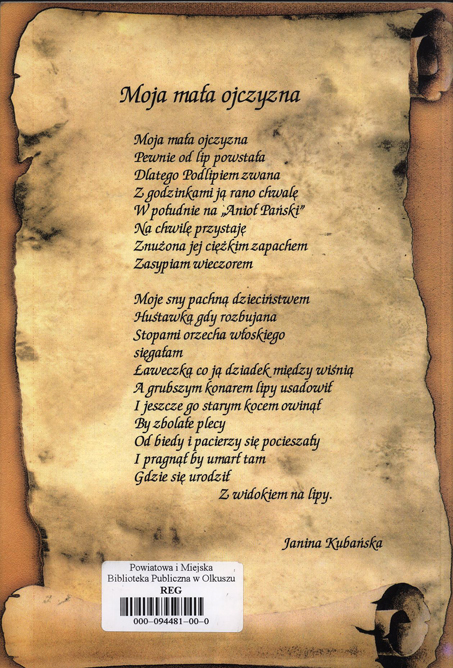 Moja mała ojczyzna
Moja mała ojczyzna
Pewnie od lip powstała
Dlatego Podlipiem zwana
Z godzinkami ją rano chwalę
W południe na „Anioł Pański”
Na chwilę przystaję
Znużona jej ciężkim zapachem
Zasypiam wieczorem
Moje sny pachną dzieciństwem
Huśtawką gdy rozbujana
Stopami orzecha włoskiego
sięgałam
Ławeczką co ją dziadek między wiśnią
A grubszym konarem lipy usadowił
I jeszcze go starym kocem owinął
By zbolałe plecy
Od biedy i pacierzy się pocieszały
I pragnął by umarł tam
Gdzie się urodził
Z widokiem na lipy.
Janina Kubańska
Powiatowa i Miejska
Biblioteka Publiczna w Olkuszu
REG
000-094481-00-0